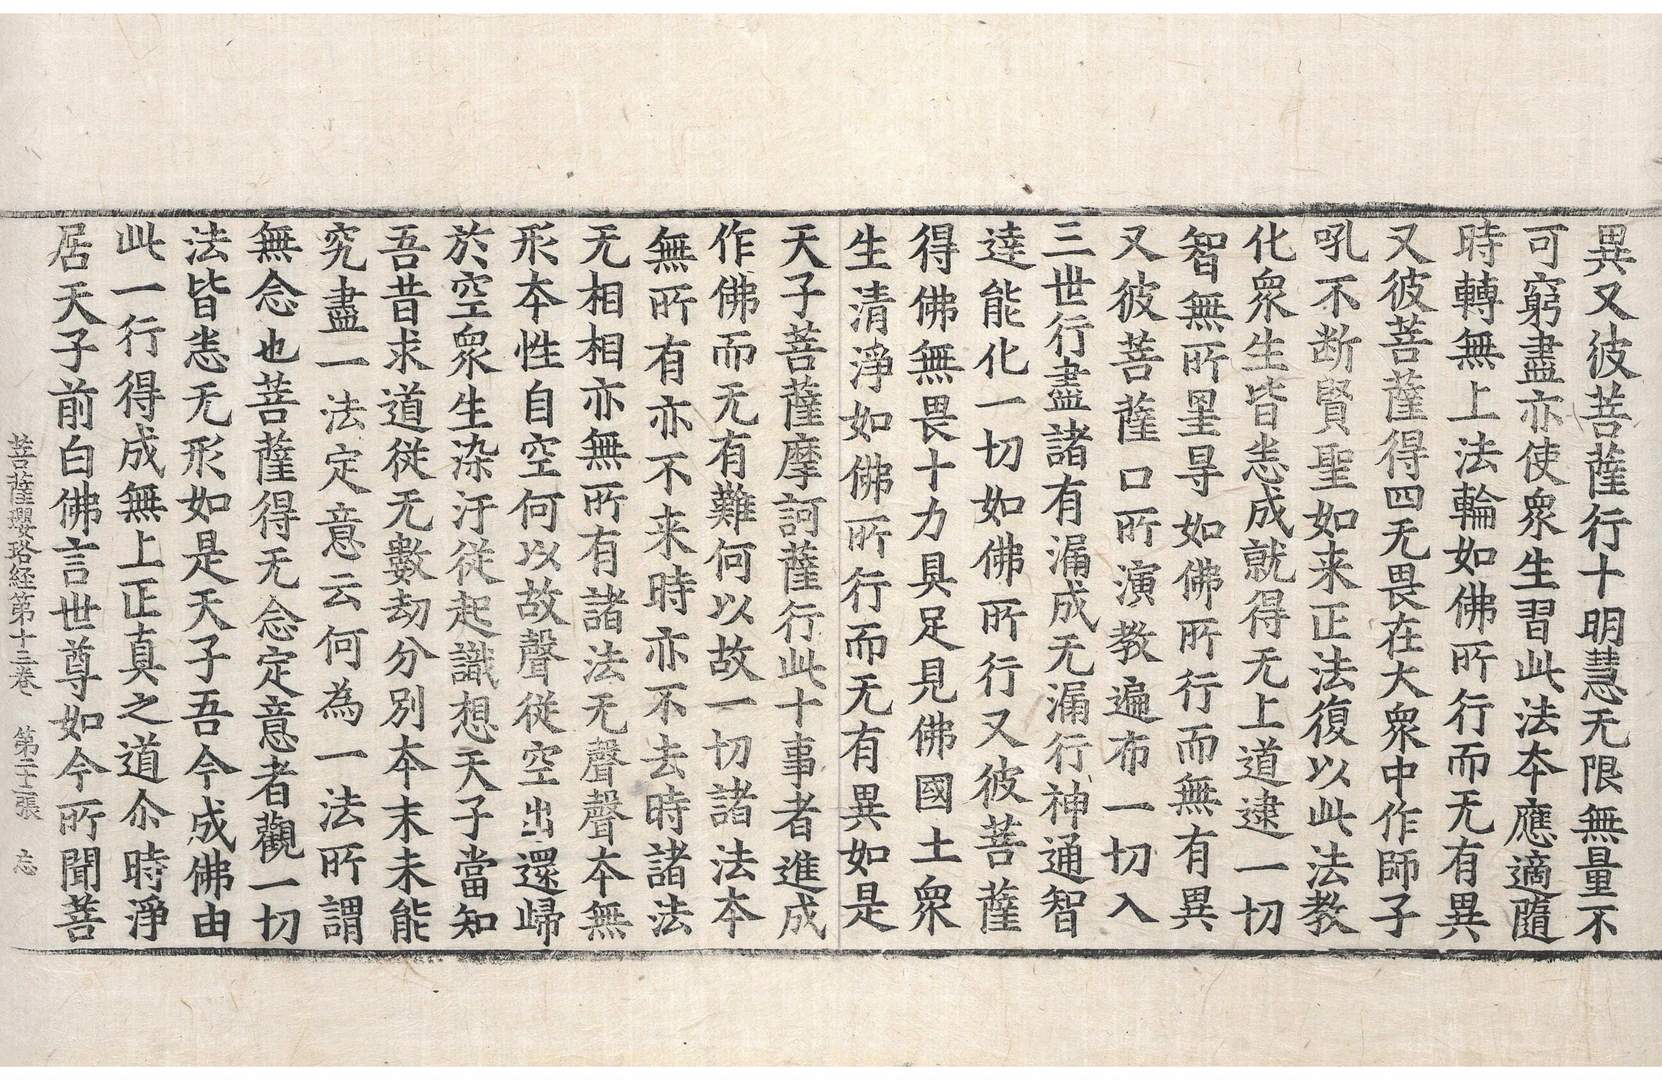 異又彼菩薩行十明慧无限無量不
可窮盡亦使衆生習此法本應適隨
時轉無上法輪如佛所行而无有異
又彼菩薩得四无畏在大衆中作師子
吼不断賢聖如来正法復以此法教
化衆生皆悉成就得无上道逮一切
智無所罣㝵如佛所行而無有異
又彼菩薩口所演教遍布一切入
三世行盡諸有漏成无漏行神通智
達能化一切如佛所行又彼菩薩
得佛無畏十力具足見佛國土衆
生清淨如佛所行而无有異如是
天子菩薩摩訶薩行此十事者進成
作佛而无有難何以故一切諸法本
無所有亦不来時亦不去時諸法
无相相亦無所有諸法无聲聲本無
形本性自空何以故聲従空出還歸
於空衆生染汙従起識想天子當知
吾昔求道従无數劫分別本末未能
究盡一法定意云何為一法所謂
無念也菩薩得无念定意者觀一切
法皆悉无形如是天子吾今成佛由
此一行得成無上正真之道尒時淨
居天子前白佛言世尊如今所聞菩
菩薩瓔珞経第十三卷 第二十二張 忘